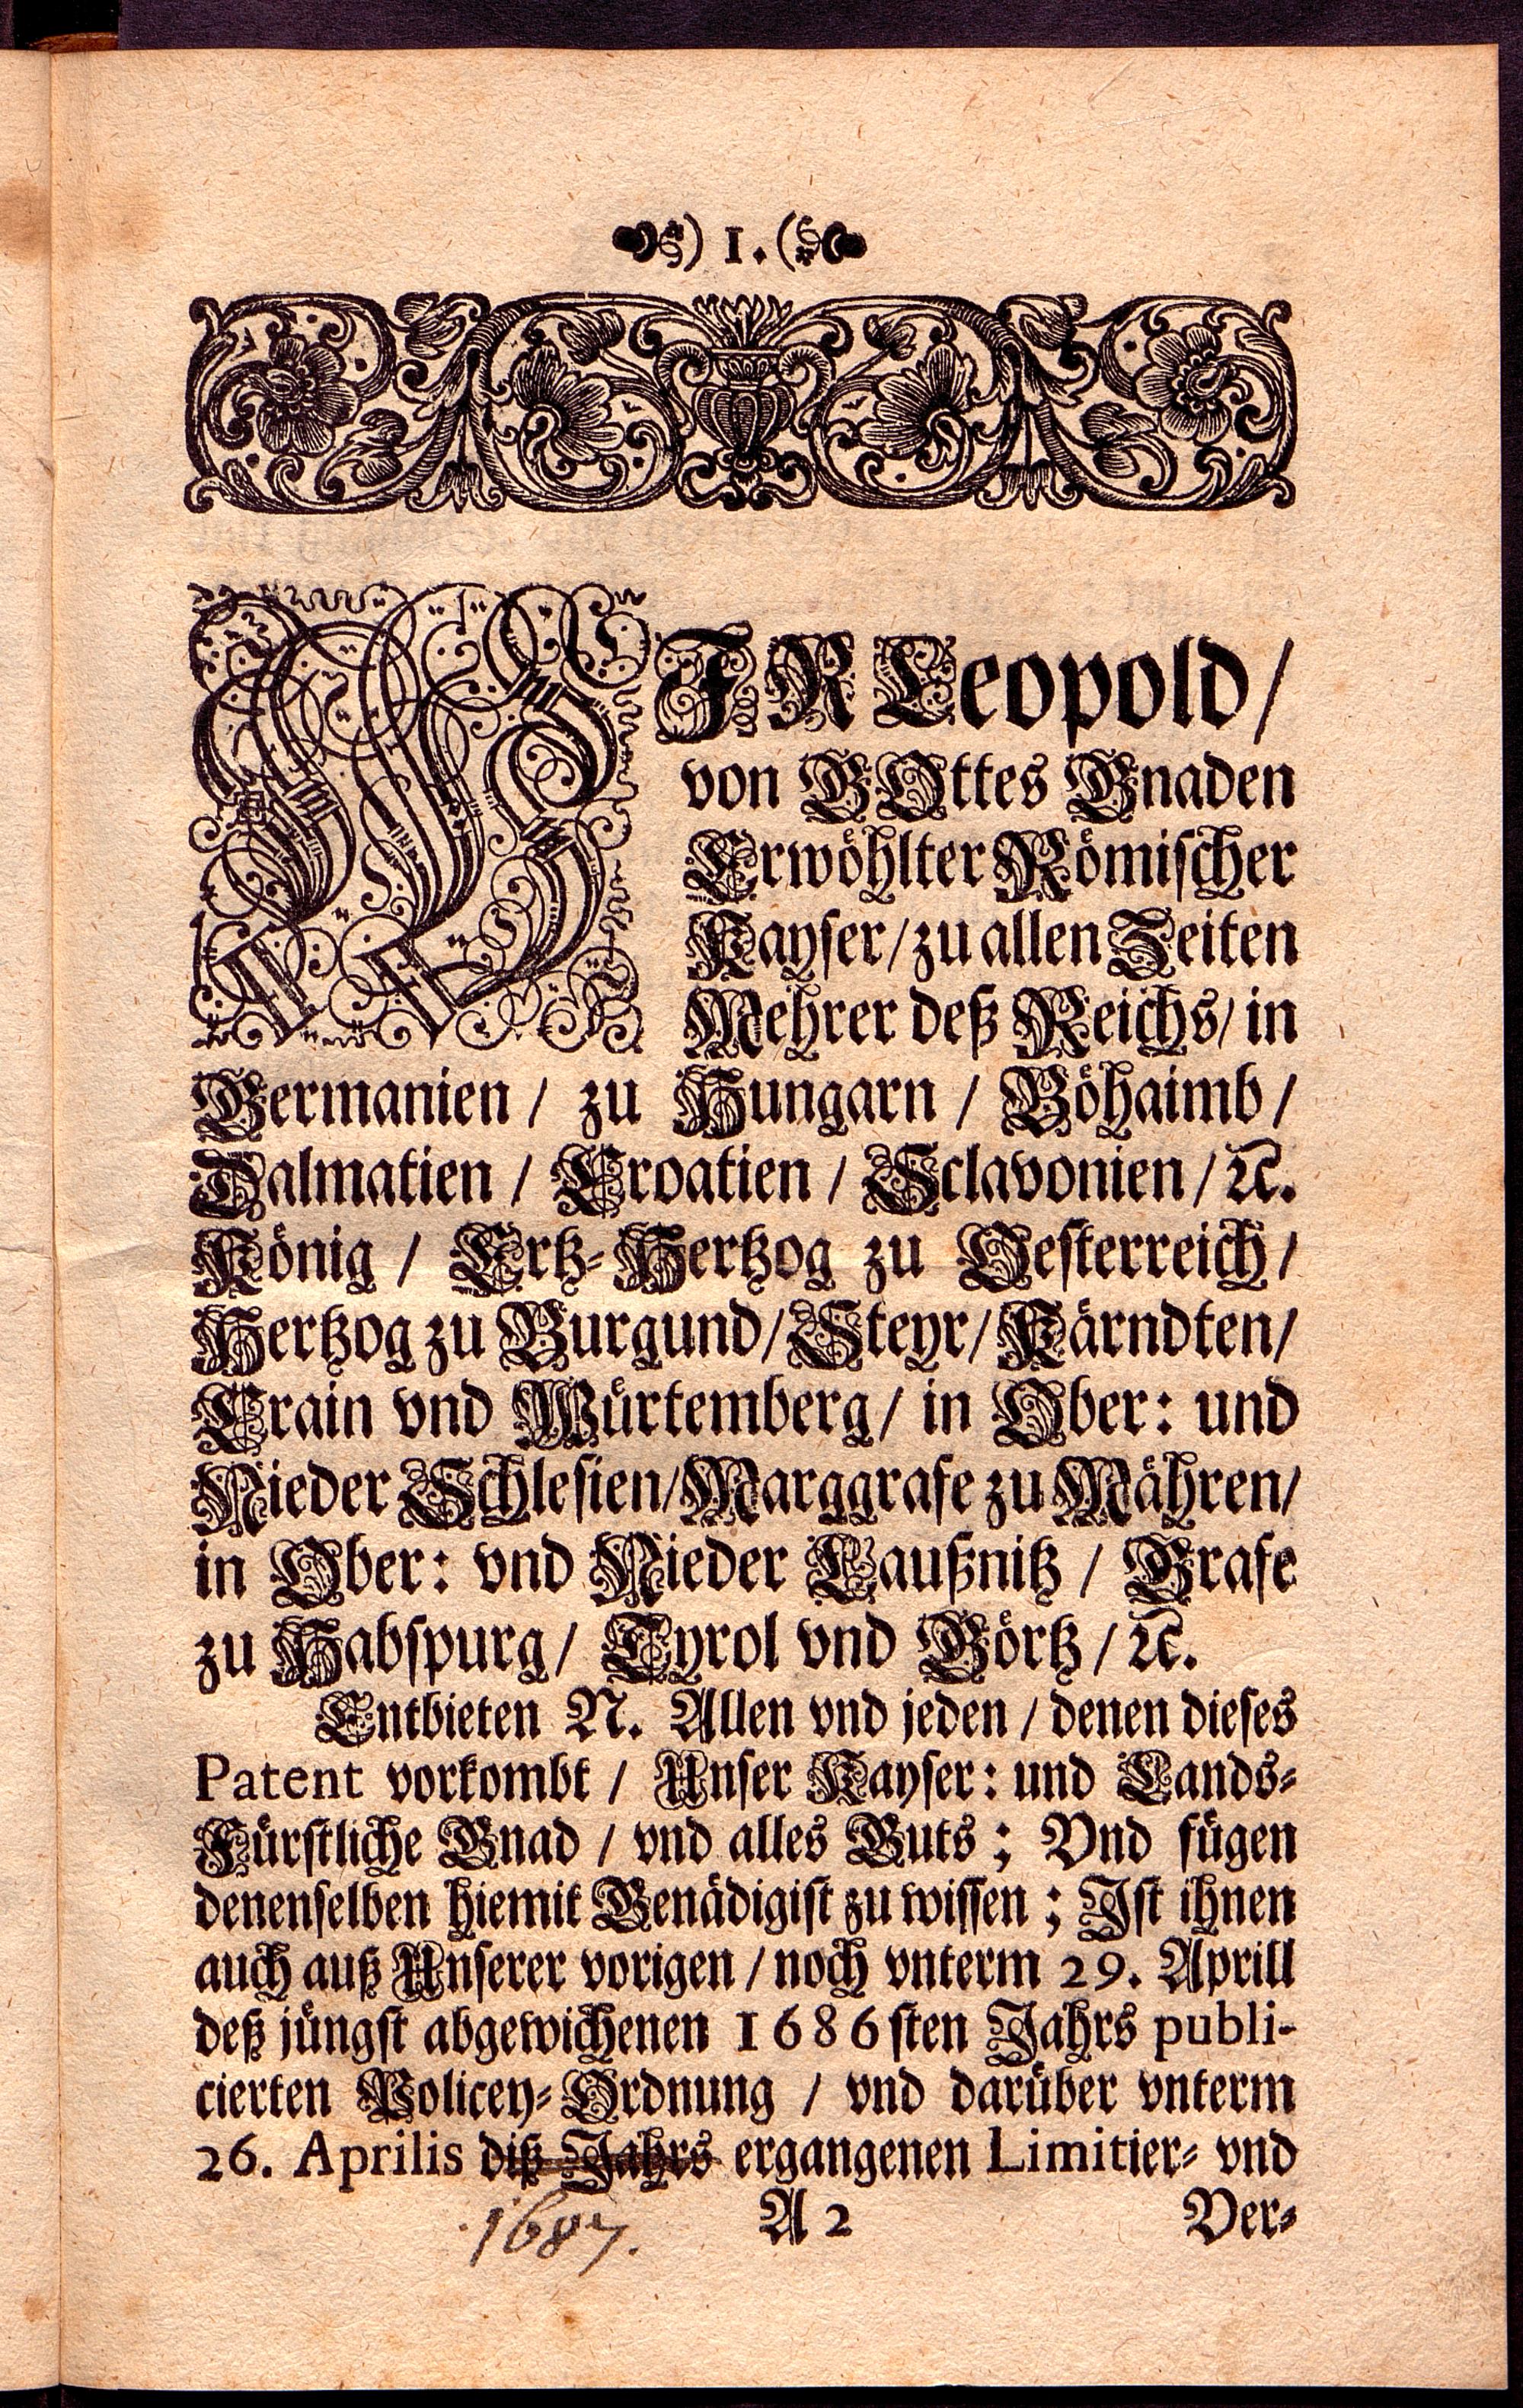 ) 1. (
WJR Leopold/
von GOttes Gnaden
Erwöhlter Römischer
Kayser/ zu allen Zeiten
Mehrer deß Reichs/ in
Germanien / zu Hungarn / Böhaimb /
Dalmatien / Croatien / Sclavonien / ꝛc.
König / Ertz-Hertzog zu Oesterreich /
Hertzog zu Burgund/ Steyr/ Kärndten/
Crain vnd Würtemberg/ in Ober: und
Nieder Schlesien/ Marggrafe zu Mähren/
in Ober: vnd Nieder Laußnitz / Grafe
zu Habspurg/ Tyrol vnd Görtz / ꝛc.
Entbieten N. Allen vnd jeden / denen dieses
Patent vorkombt / Unser Kayser: und Lands-
Fürstliche Gnad / vnd alles Guts; Vnd fügen
denenselben hiemit Genädigist zu wissen; Ist ihnen
auch auß Unserer vorigen / noch vnterm 29. Aprill
deß jüngst abgewichenen 1686sten Jahrs publi-
cierten Policey-Ordnung / vnd darüber vnterm
26. Aprilis diß Jahrs ergangenen Limitier- vnd
1687.
A 2
Ver-